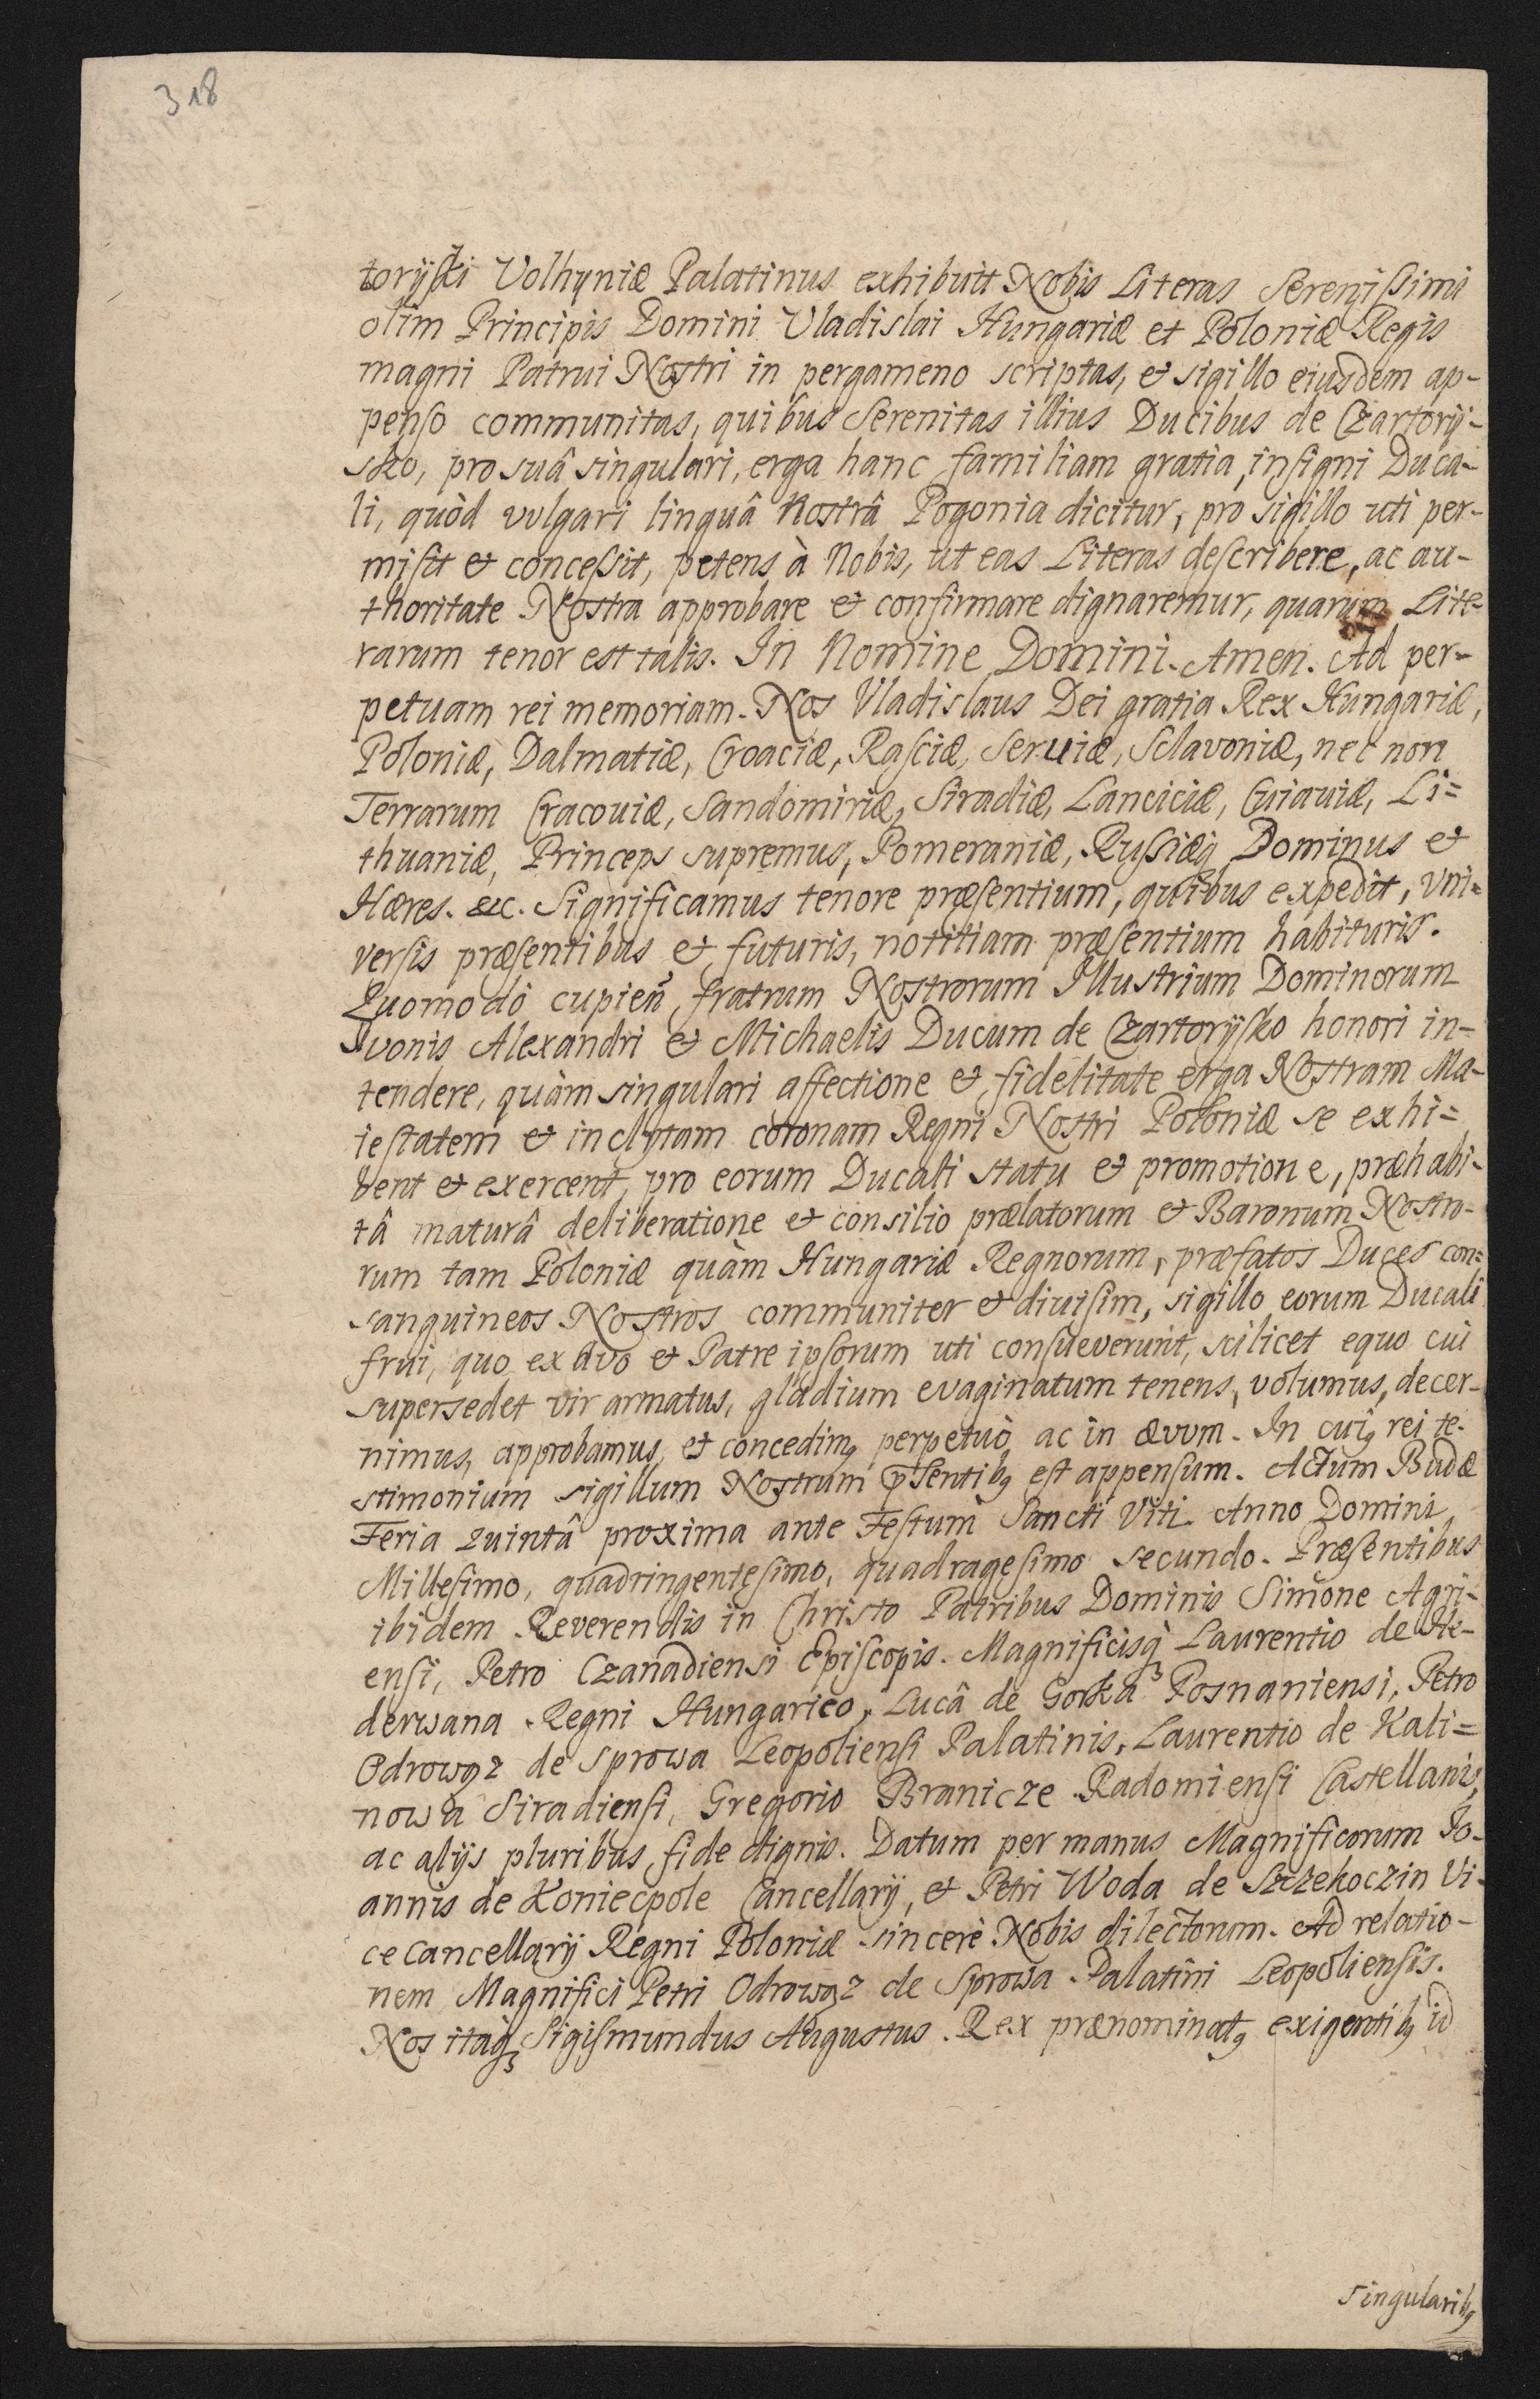 318
toryski Volhyniæ Palatinus exhibuit Nobis Literas Serenissimi
olim Principis Domini Vladislai Hungariæ et Poloniæ Regis
magni Patrui Nostri in pergameno scriptas, et sigillo eiusdem ap-
penso communitas, quibus Serenitas illius Ducibus de Czartorij-
sko, pro suâ singulari, erga hanc familiam gratia, insigni Duca-
li, quòd vulgari linguâ Nostrâ Pogonia dicitur, pro sigillo uti per-
misit et concessit, petens à Nobis, ut eas Literas describere, ac au-
thoritate Nostra approbare et confirmare dignaremur, quarum Lite-
rarum tenor est talis. In Nomine Domini. Amen. Ad per-
petuam rei memoriam. Nos Vladislaus Dei gratia Rex Hungariæ,
Poloniæ, Dalmatiæ, Croaciæ, Rasciæ, Seruiæ, Sclavoniæ, nec non
Terrarum Cracouiæ, Sandomiriæ, Siradiæ, Lanciciæ, Cuiauiæ, Li=
thuaniæ, Princeps supremus, Pomeraniæ, Russiæq Dominus et
Hæres. &c. Significamus tenore præsentium, quibus expedit, Vni=
versis præsentibus et futuris, notitiam præsentium habituris.
Quomodò cupien̄ fratrum Nostrorum Illustrium Dominorum
Ivonis Alexandri et Michaelis Ducum de Czartorysko honori in-
tendere, quàm singulari affectione et fidelitate erga Nostram Ma-
iestatem et inclytam coronam Regni Nostri Poloniæ se exhi=
bent et exercent, pro eorum Ducali statu et promotione, præhabi-
tâ maturâ deliberatione et consilio prælatorum et Baronum Nostro-
rum tam Poloniæ quàm Hungariæ Regnorum, præfatos Duces con=
sanguineos Nostros communiter et diuisim, sigillo eorum Ducali
frui, quo ex avo et Patre ipsorum uti consueverunt, scilicet equo cui
supersedet vir armatus, gladium evaginatum tenens, volumus, decer-
nimus, approbamus, et concedimꝰ perpetuò ac in ævvm. In cuiꝰ rei te-
stimonium sigillum Nostrum p̄sentibꝰ est appensum. Actum Budæ
Feria Quintâ proxima ante Festum Sancti Viti. Anno Domini
Millesimo, quadringentesimo, quadragesimo secundo. Præsentibus
ibidem Reverendis in Christo Patribus Dominis Simone Agri-
ensi, Petro Czanadiensi Episcopis. Magnificisqꝫ Laurentio de He-
derwana Regni Hungarico, Lucâ de Gorka Posnaniensi, Petro
Odrowąz de Sprowa Leopoliensi Palatinis, Laurentio de Kali=
nowa Siradiensi, Gregorio Branicze Radomiensi Castellanis,
ac alijs pluribus fide dignis. Datum per manus Magnificorum Io-
annis de Koniecpole Cancellarij, et Petri Woda de Szczekoczin Vi-
ce Cancellarij Regni Poloniæ sincerè Nobis dilectorum. Ad relatio-
nem Magnifici Petri Odrowąz de Sprowa Palatini Leopoliensis.
Nos itaqꝫ Sigismundus Augustus. Rex prænominatꝰ exigentibꝰ id
Singularibꝰ